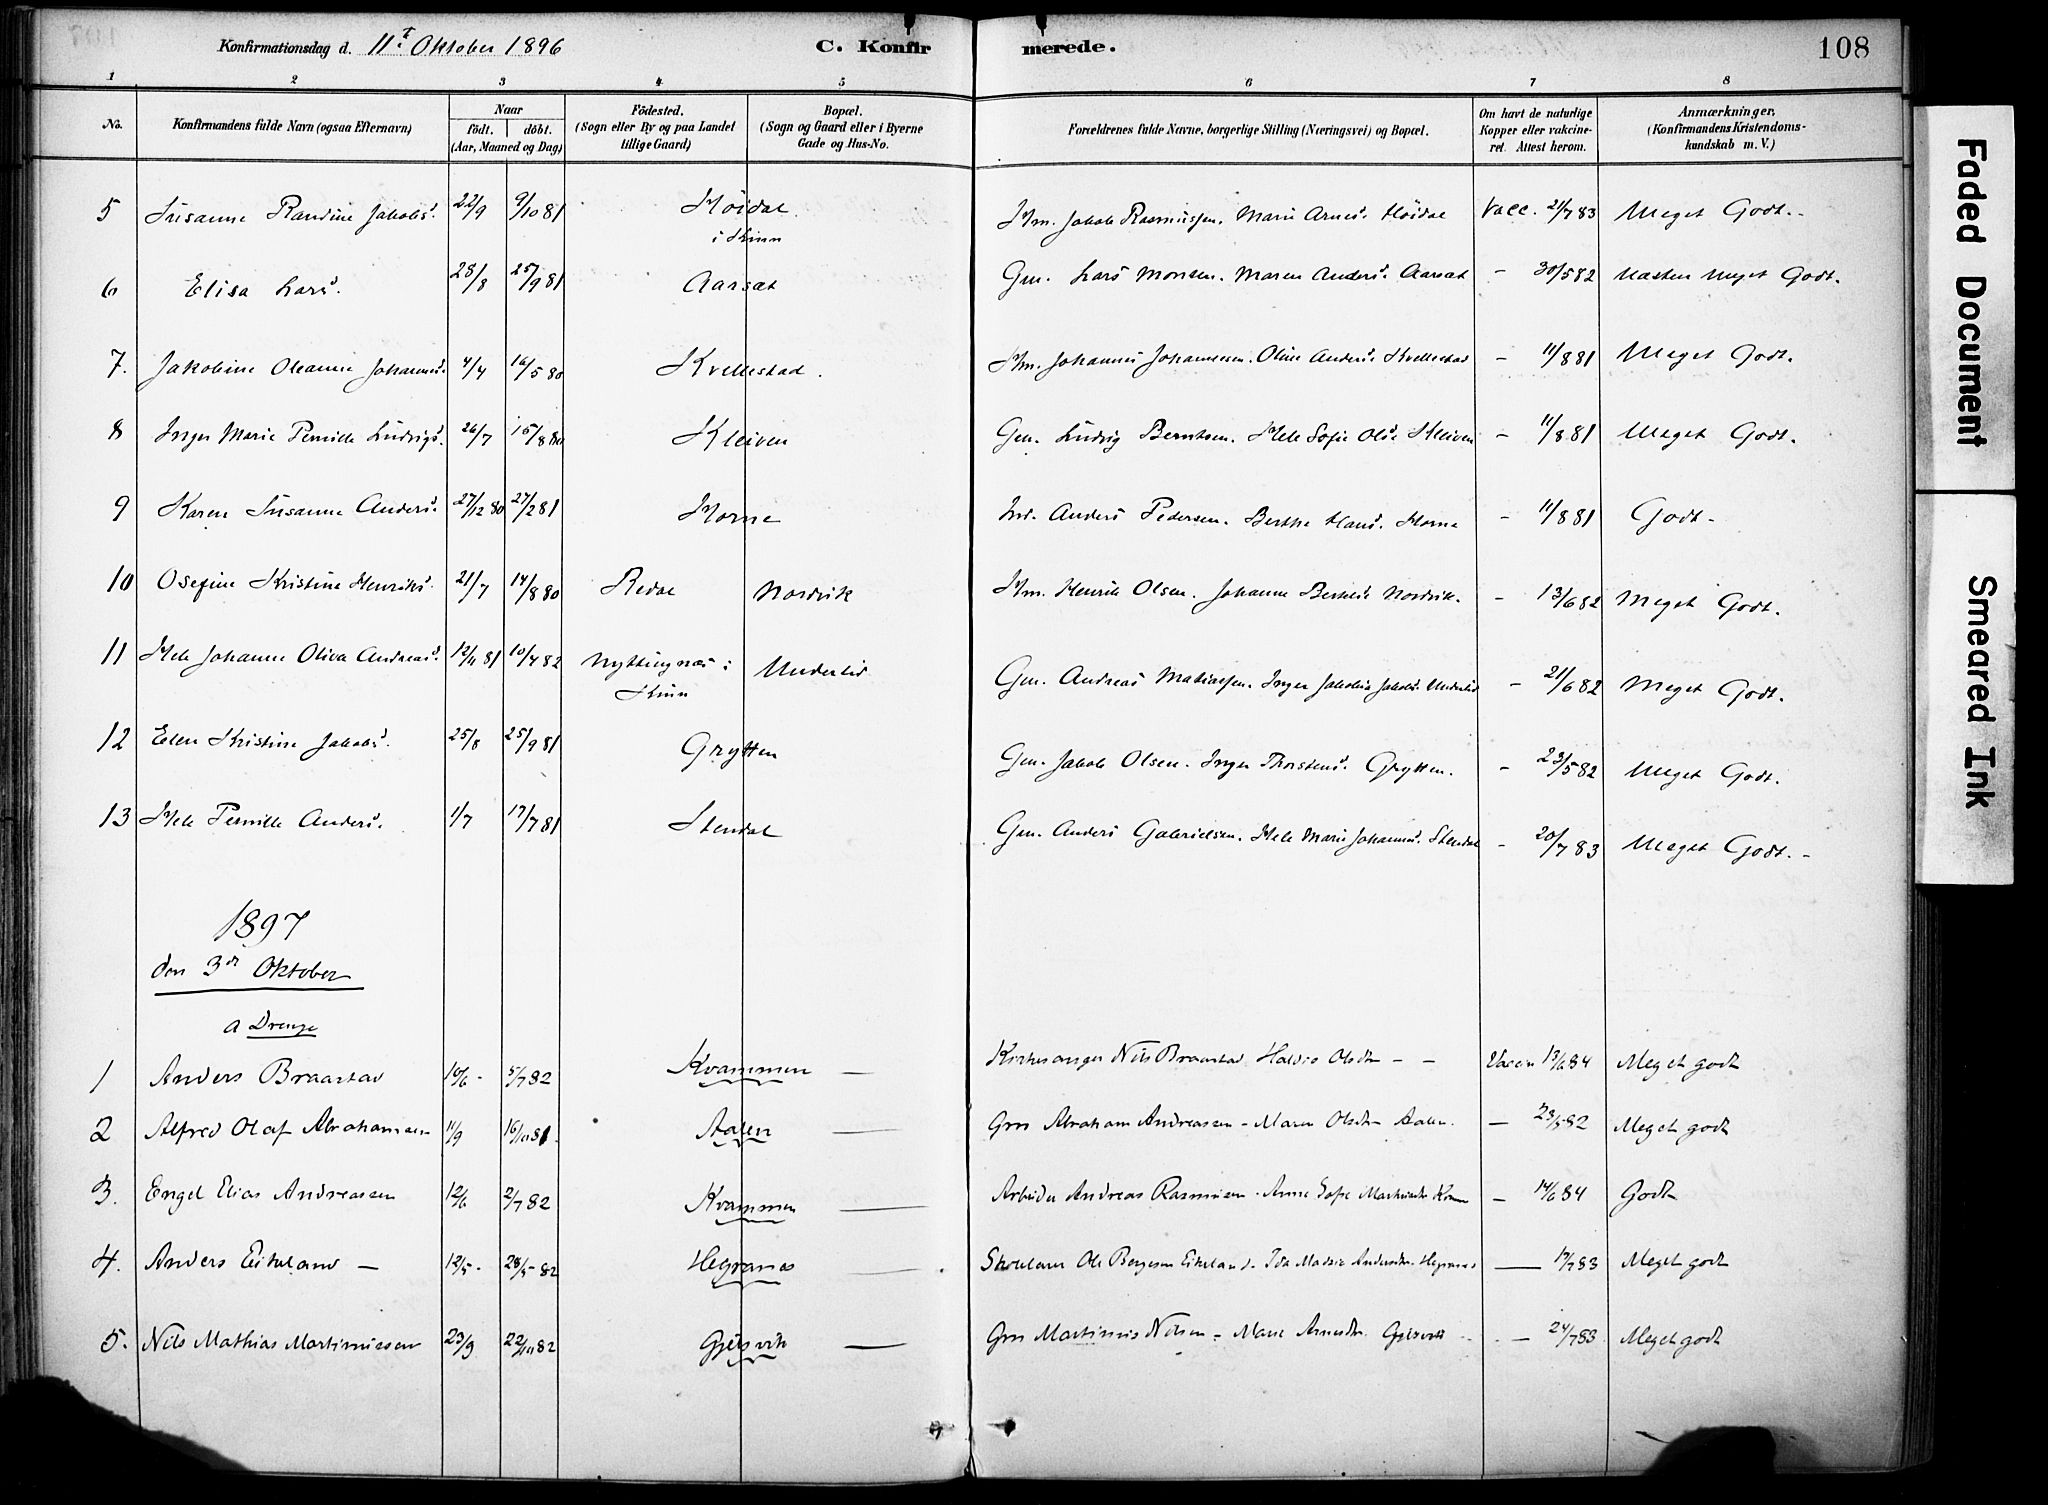 Konfirmationsdag d. 11te Oktober 1896 C. Konfirmerede. 108
1 2 3 4 5 6 7 8
No. Konfirmandens fulde Navn (ogsaa Efternavn) Naar födt. döbt. (Aar, Maaned og Dag) Födested. (Sogn eller By og paa Landet tillige Gaard) Bopæl. (Sogn og Gaard eller i Byerne Gade og Hus-No. Forældrenes fulde Navne, borgerlige Stilling (Næringsvei) og Bopæl. Om havt de naturlige Kopper eller vakcineret. Attest herom. Anmærkninger. (Konfirmandens Kristendomskundskab m. V.)
5 Susanne Randine Jakobsd. 22/9 9/10 81 Höidal i Kinn Hm. Jakob Rasmussen. Marie Arnesd. Höidal Vacc. 21/7 83 Meget Godt.
6 Elisa Larsd. 28/8 25/9 81 Aarsæt Gm. Lars Monsen. Maren Andersd. Aarsæt - 30/5 82 Næsten Meget Godt.
7. Jakobine Oleanne Johannesd. 4/4 16/5 80 Kvellestad. Hm. Johannes Johannesen. Oline Andersd. Kvellestad - 11/8 81 Meget Godt.
8 Inger Marie Pernille Ludvigsd. 26/7 15/8 80 Kleiven Gm. Ludvig Berntsen. Hele Sofie Olsd. Kleiven - 11/8 81 Meget Godt.
9 Karen Susanne Andersd. 27/12 80 27/2 81 Horne Ind. Anders Pedersen. Berthe Hansd. Horne - 11/8 81 Godt.
10 Osefine Kristine Henriksd. 21/7 14/8 80 Redal Nordvik Hm. Henrik Olsen. Johanne Bertelsd. Nordvik. - 13/6 82 Meget Godt.
11 Hele Johanne Oliva Andreasd. 12/11 81 10/4 82 Nyttingnæs i Kinn Underlid Gm. Andreas Matiassen. Inger Jakobia Jakobsd. Underlid - 21/6 82 Meget Godt.
12 Ellen Kristine Jakobsd. 25/8 25/9 81 Grytten Gm. Jakob Olsen. Inger Thorstensd. Grytten. - 23/5 82 Meget Godt.
13 Hele Pernille Andersd. 1/7 17/7 81 Stendal Gm. Anders Gabrielsen. Hele Marie Johannesd. Stendal - 20/7 83 Meget Godt.
1897
den 3de Oktober
a Drenge
1 Anders Braastad 10/6 - 5/7 82 Kvammen — Kirkesanger Nils Braastad Haldis Olsdtr - - Vaccin 13/6 84 Meget godt
2 Alfred Olaf Abrahamsen 11/9 16/10 81. Aalen — Grm Abraham Andreassen - Maren Olsdtr Aalen. — 23/5 82 Meget godt
3. Engel Elias Andreassen 12/6 2/7 82 Kvammen — Arbeider Andreas Rasmussen. Anne Sofie — 14/6 84 Godt
4. Anders Eikeland — 12/5 - 28/5 82 Hegranæs — Skolelærer Ole Bergesen Eikeland. Ida Andersdtr. Hegranæs — 17/7 83 Meget godt
5. Nils Mathias Martinussen 23/9 22/10 82 Gjelsvik — Grm Martinus Nilsen - Marie Arnesdtr. Gjelsvik — 24/7 83 Meget godt
Faded Document
Smeared Ink